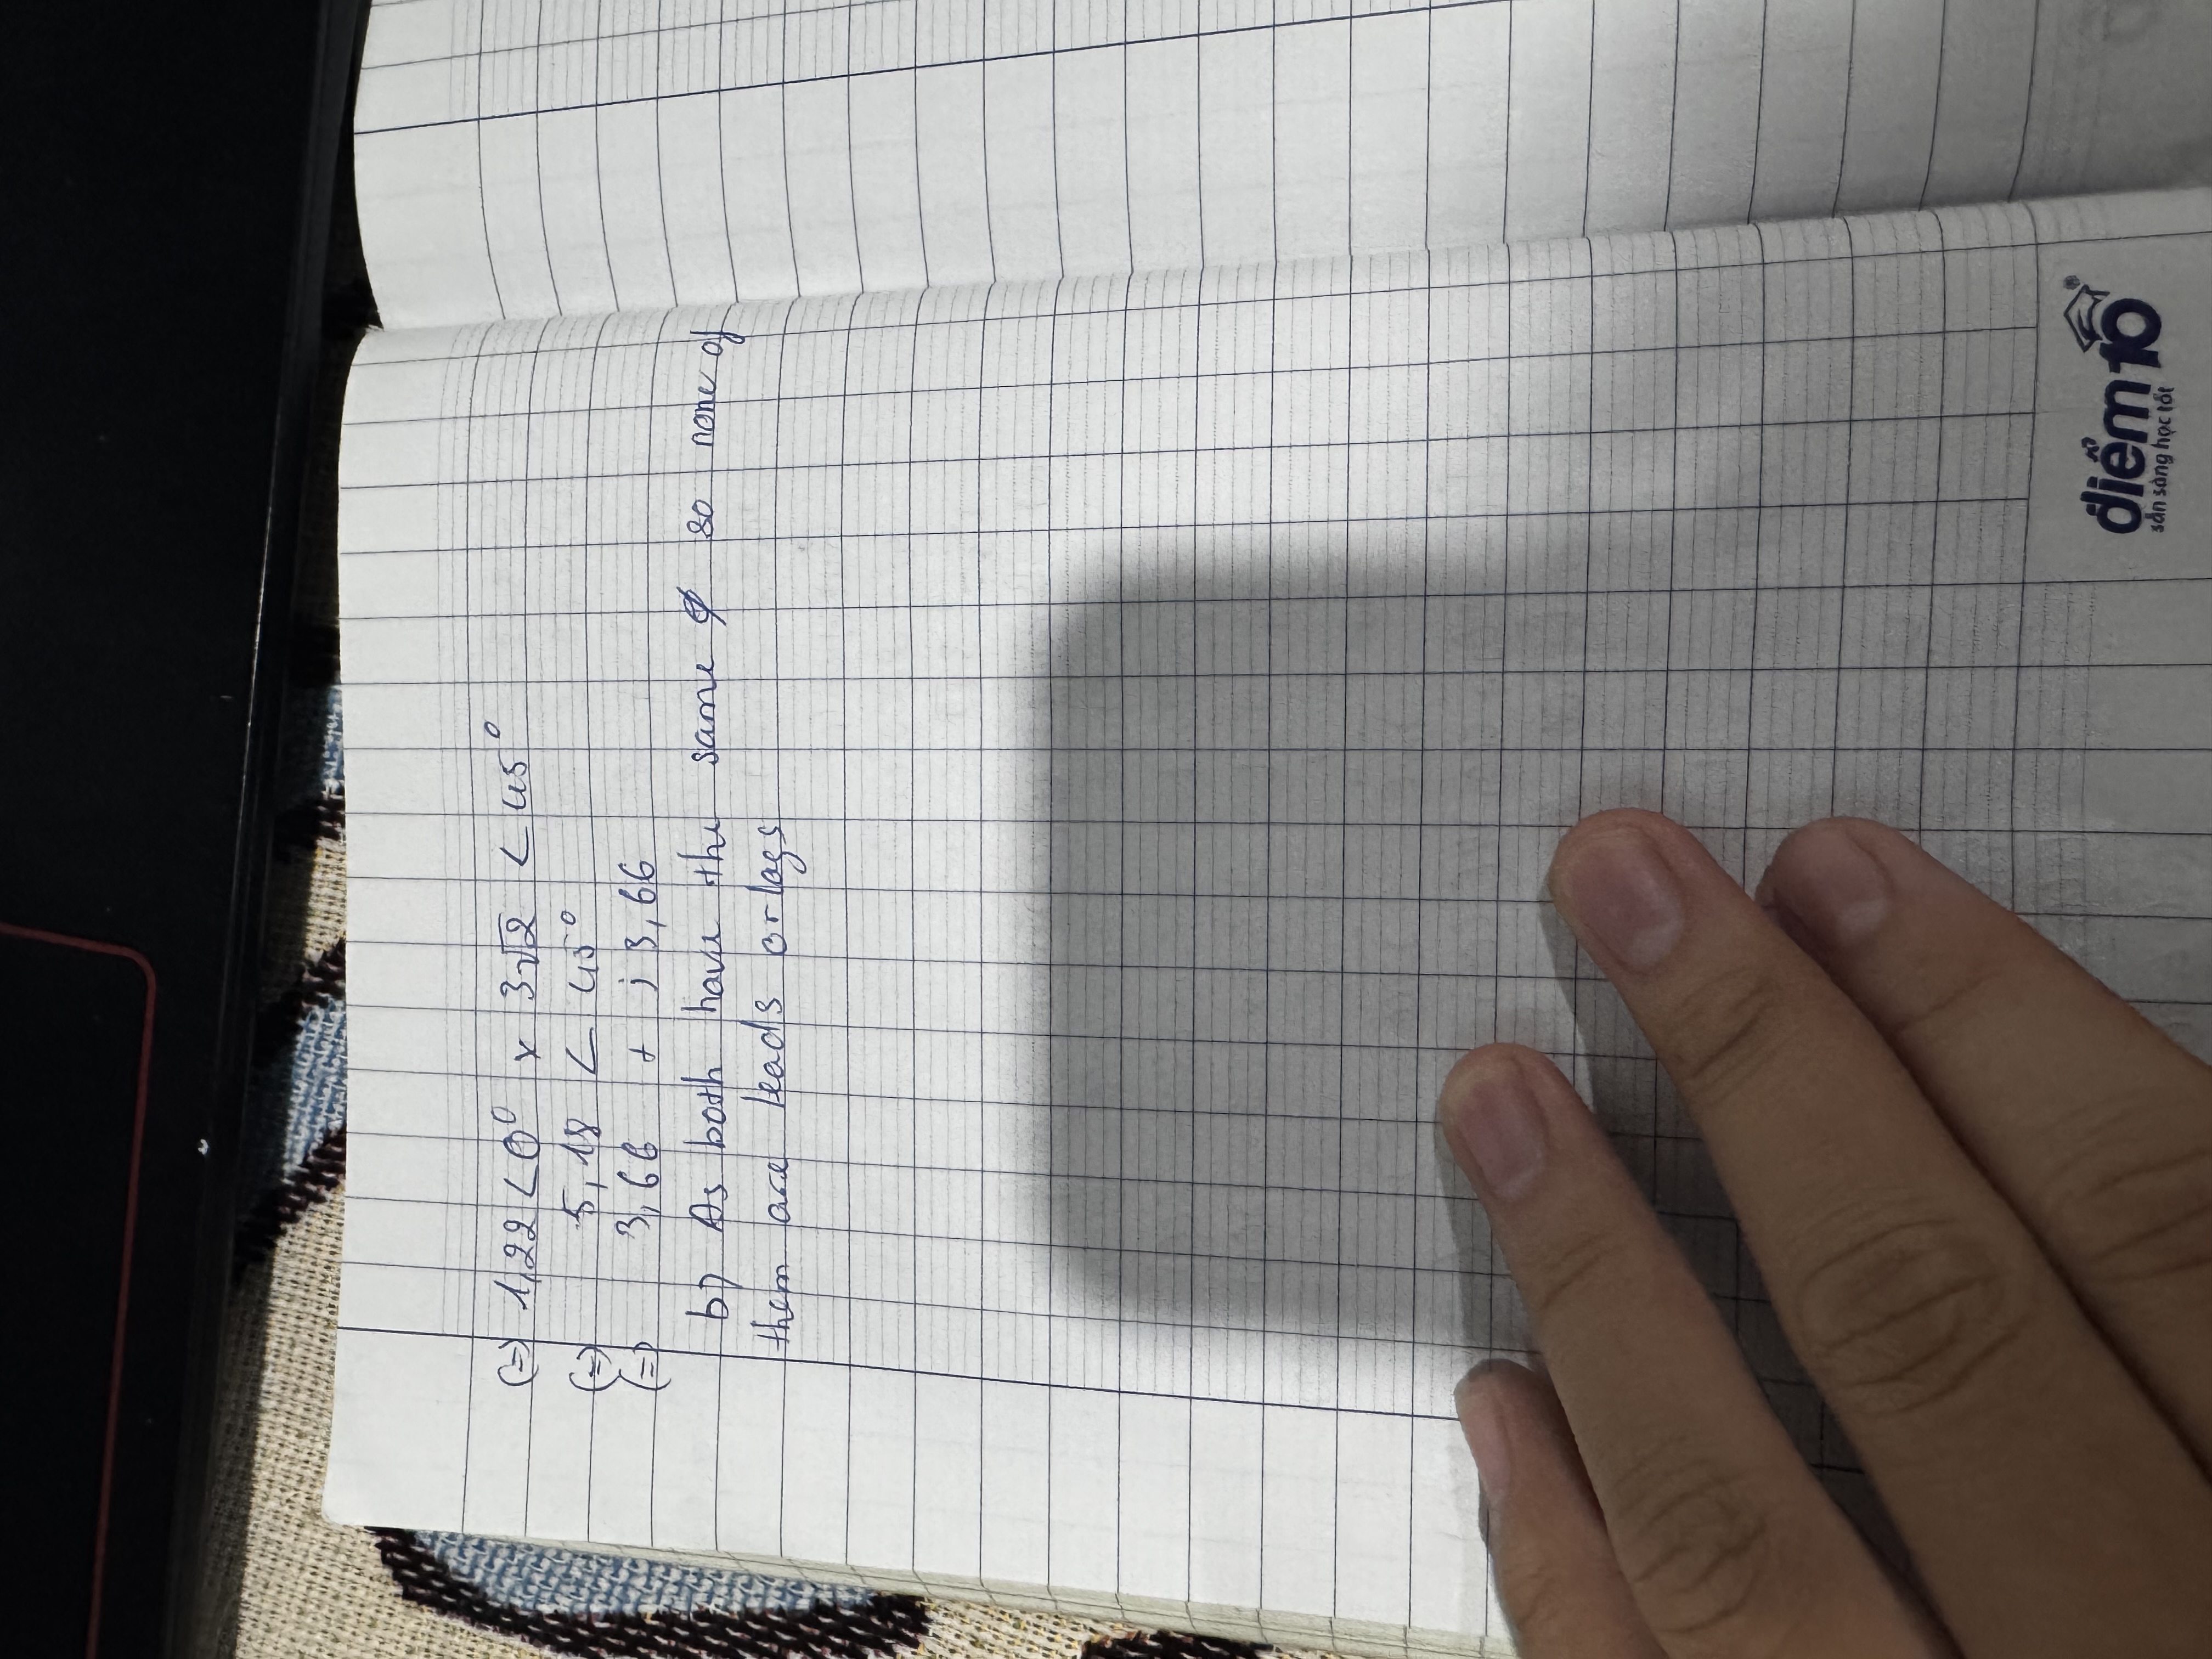 (=) 1,22 < 0° x 3√2 < 45°
(=) 5,18 < 45°
(=) 3,66 + j 3,66
b) As both have the same φ so none of
them are leads or lags
điểm10®
sẵn sàng học tốt